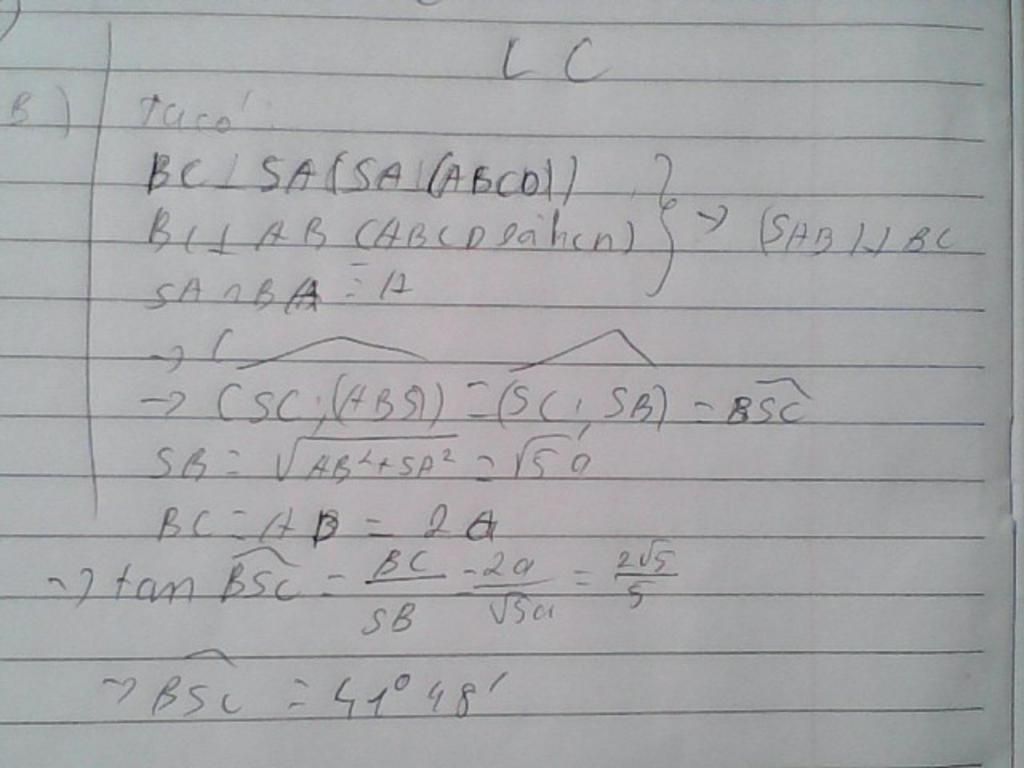 L C
B) Ta có:
BC ⊥ SA (SA ⊥ (ABCD))
BC ⊥ AB (ABCD là hcn) } → (SAB) ⊥ BC
SA ∩ BA = A
→ (
→ (SC; (ABS)) = (SC; SB) = BSC
SB = √(AB² + SA²) = √5 a
BC = AB = 2a
→ tan BSC = BC/SB = 2a/√5a = 2√5/5
→ BSC = 41° 48'